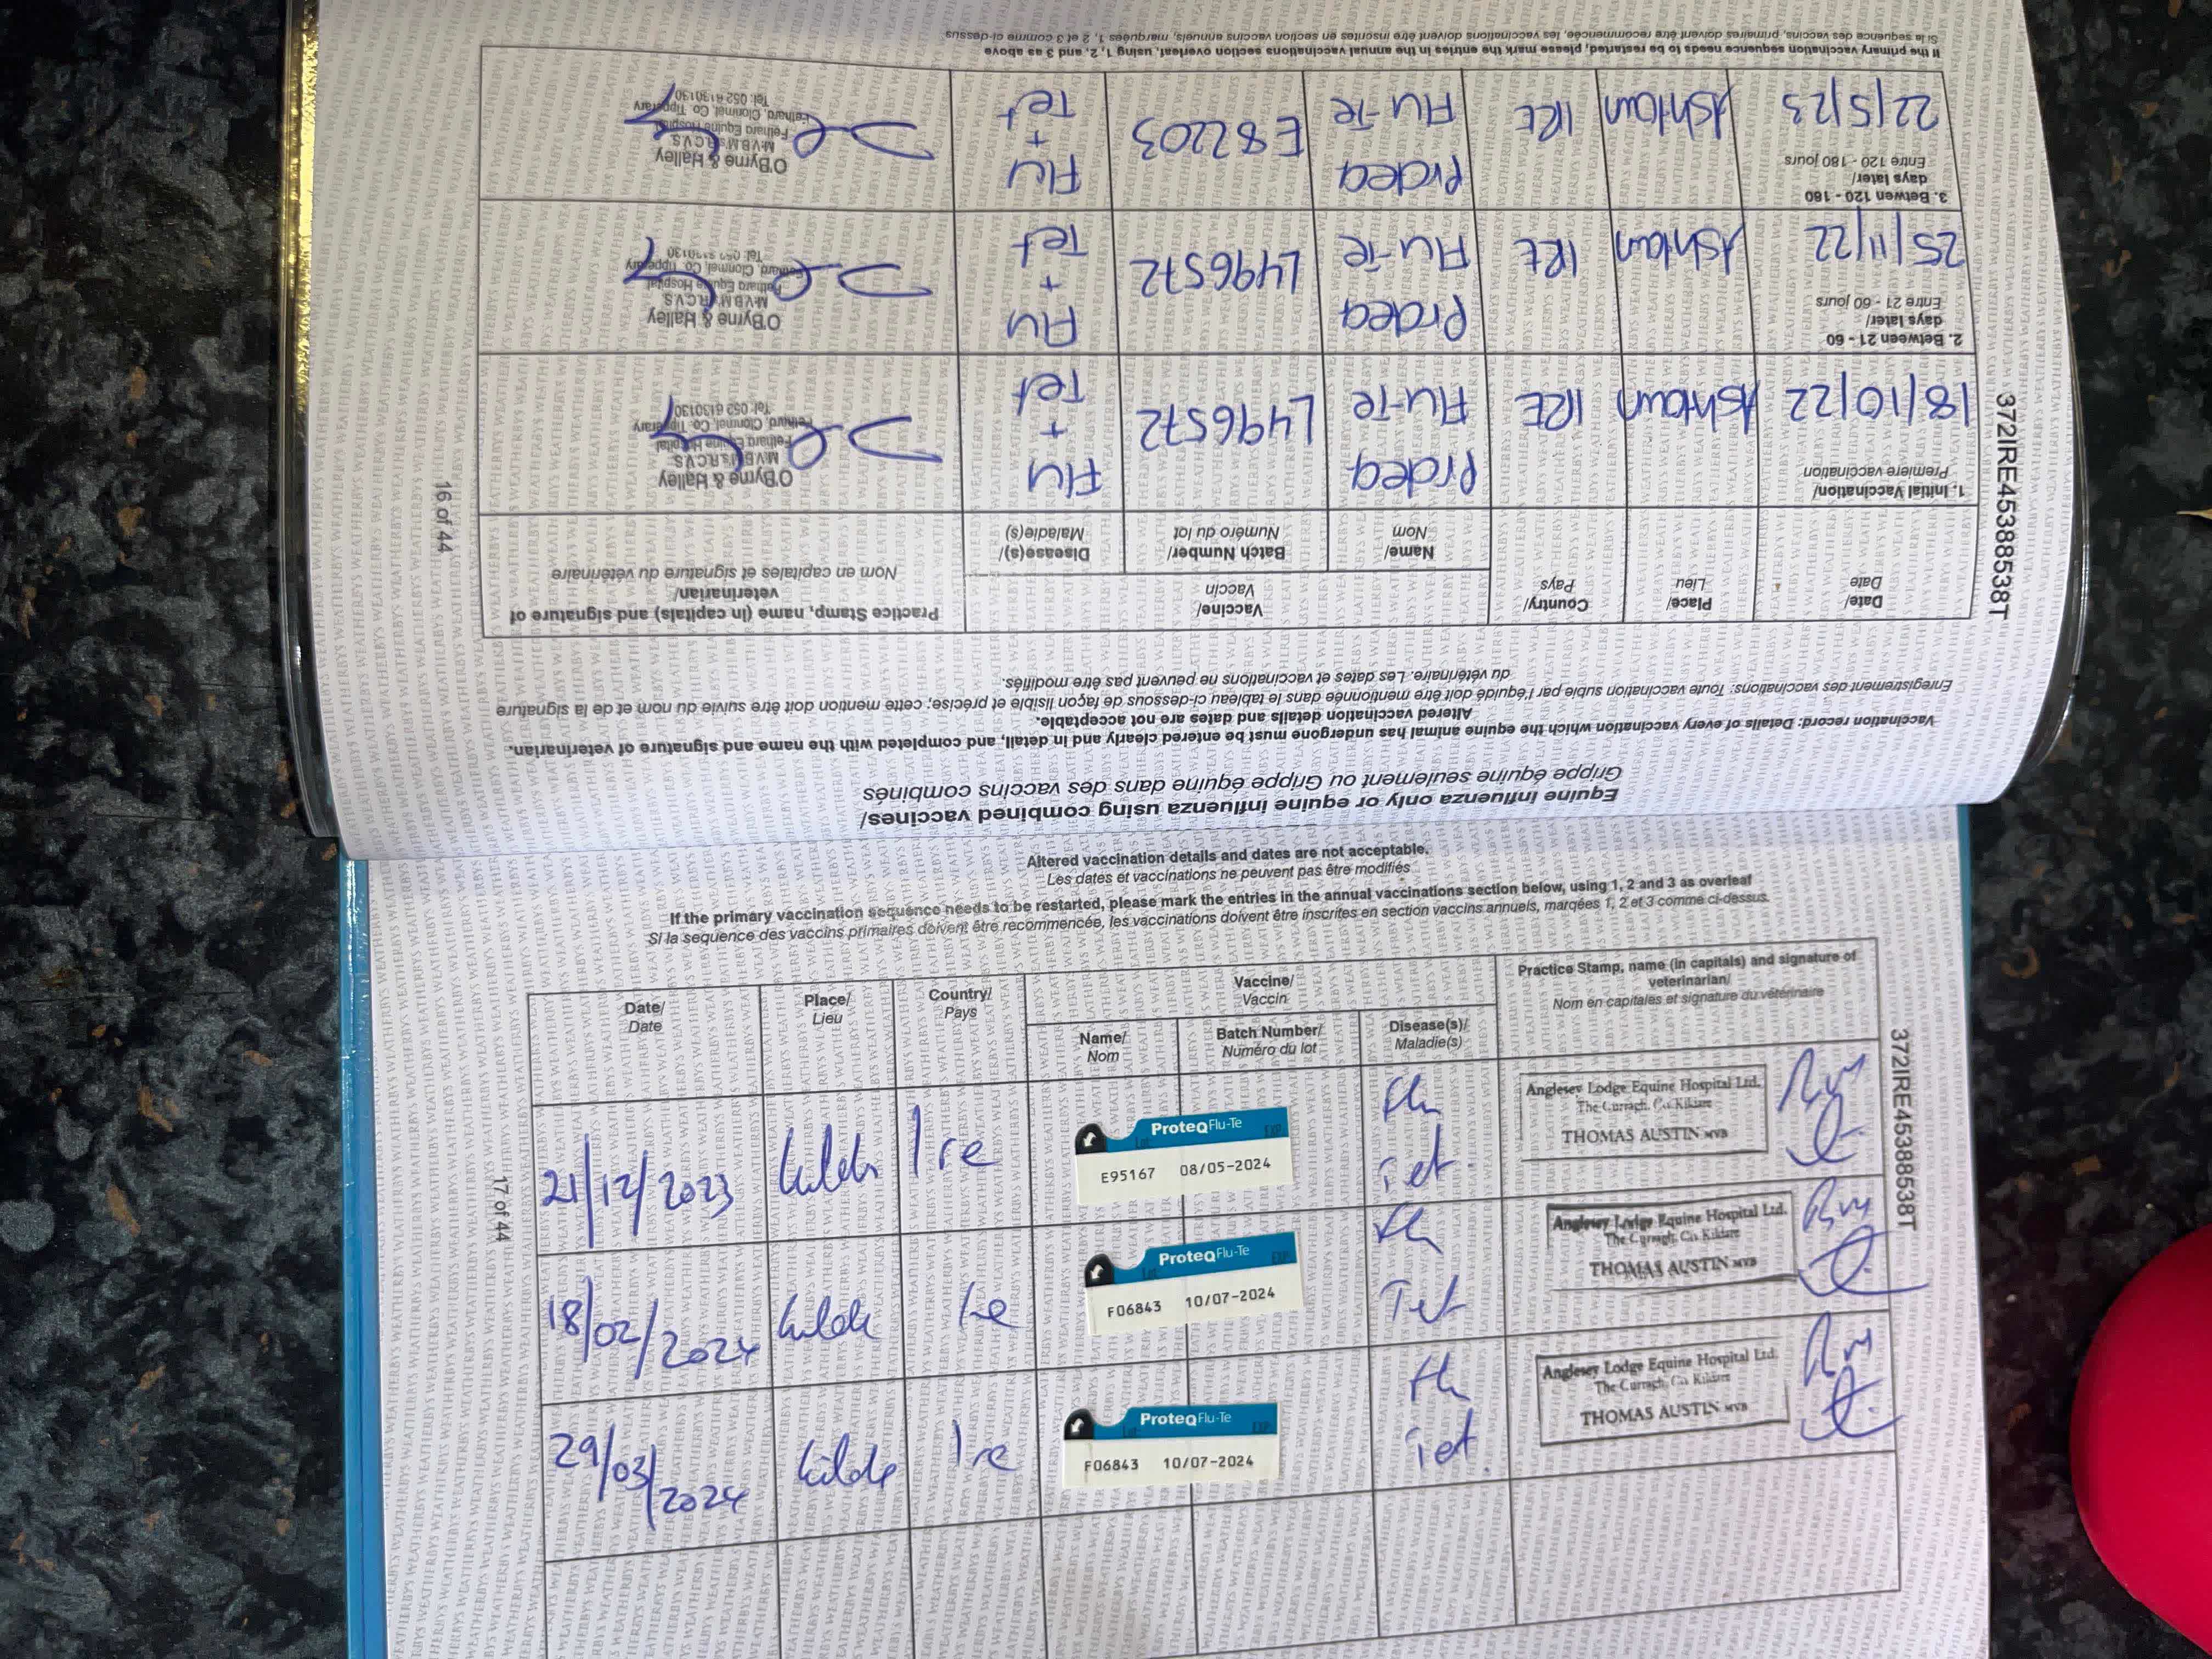 Equine influenza only or equine influenza using combined vaccines/
Grippe équine seulement ou Grippe équine dans des vaccins combinés
Vaccination record: Details of every vaccination which the equine animal has undergone must be entered clearly and in detail, and completed with the name and signature of veterinarian.
Altered vaccination details and dates are not acceptable.
Enregistrement des vaccinations: Toute vaccination subie par l'équidé doit être mentionnée dans le tableau ci-dessous de façon lisible et précise; cette mention doit être suivie du nom et de la signature
du vétérinaire. Les dates et vaccinations ne peuvent pas être modifiés.
372IRE45388538T
Date/
Date
Place/
Lieu
Country/
Pays
Vaccine/
Vaccin
Name/
Nom
Batch Number/
Numéro du lot
Disease(s)/
Maladie(s)
Practice Stamp, name (in capitals) and signature of
veterinarian/
Nom en capitales et signature du vétérinaire
1. Initial Vaccination/
Première vaccination
18/10/22
Ashtown
IRE
Proteq
Flu-Te
L496572
Flu
+
Tet
O'Byrne & Halley
M.V.B M's R.C.V.S
Fethard Equine Hospital
Fethard, Clonmel, Co. Tipperary
Tel: 052 6130130
2. Between 21 - 60
days later/
Entre 21 - 60 jours
25/11/22
Ashtown
IRE
Proteq
Flu-Te
L496572
Flu
+
Tet
O'Byrne & Halley
M.V.B M's R.C.V.S
Fethard Equine Hospital
Fethard, Clonmel, Co. Tipperary
Tel: 052 6130130
3. Betwen 120 - 180
days later/
Entre 120 - 180 jours
22/5/23
Ashtown
IRE
Proteq
Flu-Te
E82203
Flu
+
Tet
O'Byrne & Halley
M.V.B M's R.C.V.S
Fethard Equine Hospital
Fethard, Clonmel, Co. Tipperary
Tel: 052 6130130
If the primary vaccination sequence needs to be restarted, please mark the entries in the annual vaccinations section overleaf, using 1, 2, and 3 as above
Si la sequence des vaccins, primaires doivent être recommencée, les vaccinations doivent être inscrites en section vaccins annuels, marquées 1, 2 et 3 comme ci-dessus
16 of 44
Altered vaccination details and dates are not acceptable.
Les dates et vaccinations ne peuvent pas être modifiés
If the primary vaccination sequence needs to be restarted, please mark the entries in the annual vaccinations section below, using 1, 2 and 3 as overleaf
Si la sequence des vaccins primaires doivent être recommencée, les vaccinations doivent être inscrites en section vaccins annuels, marqées 1, 2 et 3 comme ci-dessus.
Date/
Date
Place/
Lieu
Country/
Pays
Vaccine/
Vaccin
Name/
Nom
Batch Number/
Numéro du lot
Disease(s)/
Maladie(s)
Practice Stamp, name (in capitals) and signature of
veterinarian/
Nom en capitales et signature du vétérinaire
21/12/2023
Ire
ProteqFlu-Te
Lot
EXP
E95167 08/05-2024
Flu
Tet.
Anglesey Lodge Equine Hospital Ltd.
The Curragh, Co. Kildare
THOMAS AUSTIN MVB
18/02/2024
Ire
ProteqFlu-Te
Lot
EXP
F06843 10/07-2024
Flu
Tet
Anglesey Lodge Equine Hospital Ltd.
The Curragh, Co. Kildare
THOMAS AUSTIN MVB
29/03/2024
Ire
ProteqFlu-Te
Lot
EXP
F06843 10/07-2024
Flu
Tet.
Anglesey Lodge Equine Hospital Ltd.
The Curragh, Co. Kildare
THOMAS AUSTIN MVB
372IRE45388538T
17 of 44